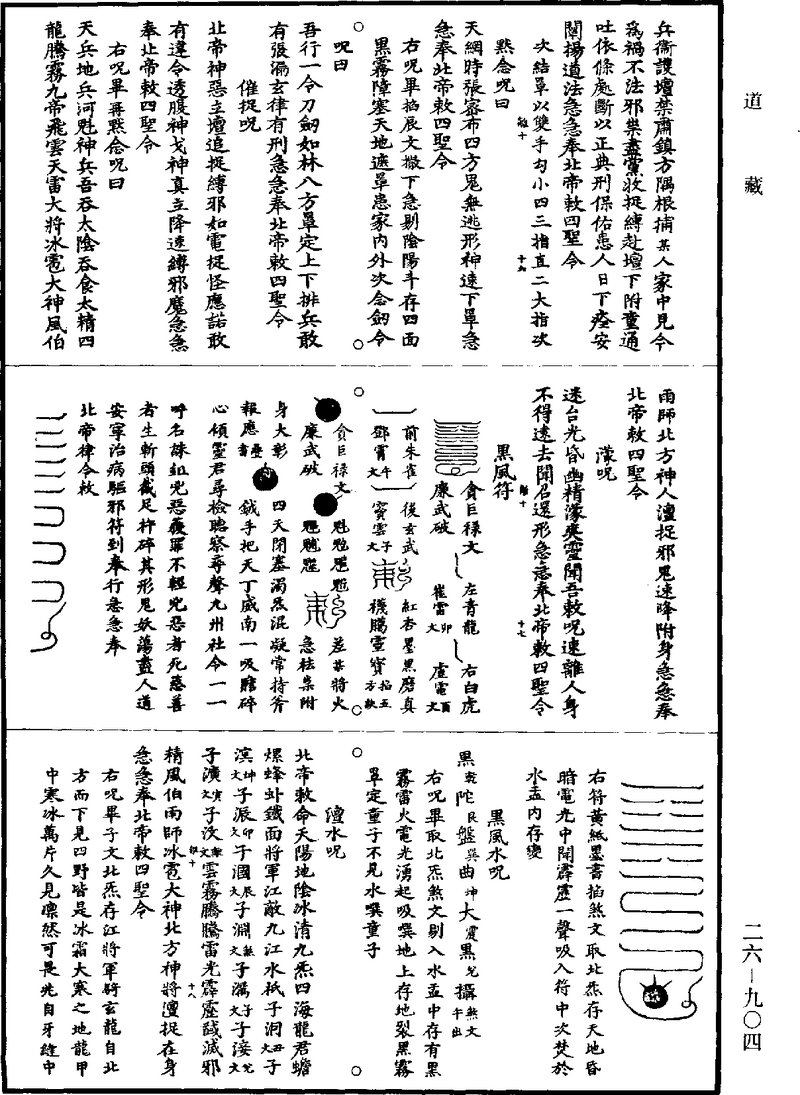 道藏
兵衛護壇禁肅鎮方隅根捕某人家中見今
為禍不法邪祟盡黨收捉縛赴壇下附童通
吐依條處斷以正典刑保佑患人日下痊安
闡揚道法急急奉北帝敕四聖令
次結罩以雙手勾小四三指直二大指次
默念呪曰
天網時張密布四方鬼無逃形神速下罩急
急奉北帝敕四聖令
右呪畢掐辰文撒下急剔陰陽斗存四面
黑霧障塞天地遮罩患家內外次念劒令
呪曰
吾行一令刀劒如林八方罩定上下排兵敢
有張漏玄律有刑急急奉北帝敕四聖令
催捉呪
北帝神惡立壇追捉縛邪如電捉怪應諾敢
有違令透腹神戈神真立降速縛邪魔急急
奉北帝敕四聖令
右呪畢再默念呪曰
天兵地兵河魁神兵吾吞太陰吞食太精四
龍騰霧九帝飛雲天雷大將冰雹大神風伯
雨師北方神人澶捉邪鬼速降附身急急奉
北帝敕四聖令
濛呪
迷台光昏幽精濛爽靈聞吾敕呪速離人身
不得遠去聞召還形急急奉北帝敕四聖令
黑風符
貪巨祿文 左青龍 右白虎
廉武破 崔雷卯文 盧電酉文
前朱雀 後玄武 紅杏墨黑磨真
鄧霄午文 竇雲子文 襪騰靈寶
貪巨祿文 魁 差某將火
廉武破 急袪祟附
身大彰 四天閉塞濁炁混凝常持斧
報應 鉞手把天丁威南一吸贍碎
心傾靈君尋檢臨察尋聲九州社令一一
呼名誅殂兇惡覆罪不輕兇惡者死慈善
者生斬頭截足粹碎其形鬼妖蕩盡人道
安寧治病驅邪符到奉行急急奉
北帝律令敕
右符黃紙墨書掐煞文取北炁存天地昏
暗電光中開霹靂一聲吸入符中次焚於
水盂內存變
黑風水呪
黑乾陀艮盤巽曲坤大黑攝煞文午出
右呪畢取北炁煞文剔入水盂中存有黑
霧雷火電光湧起吸噀地上存地裂黑霧
罩定童子不見水噀童子
澶水呪
北帝敕命天陽地陰冰清九炁四海龍君蟾
螺蜂蚪鐵面將軍江敵九江水袛子洞丑文子
溟坤文子派卯文子涸辰文子淵煞文子滿子文子接
子漬寅文子汶文雲霧騰騰雷光霹靂馘滅邪
精風伯雨師冰雹大神北方神將澶捉在身
急急奉北帝敕四聖令
右呪畢子文北炁存江將軍騎玄龍自北
方而下見四野皆是冰霜大寒之地龍甲
中寒冰萬片久見凜然可畏先自牙縫中
二六—九〇四